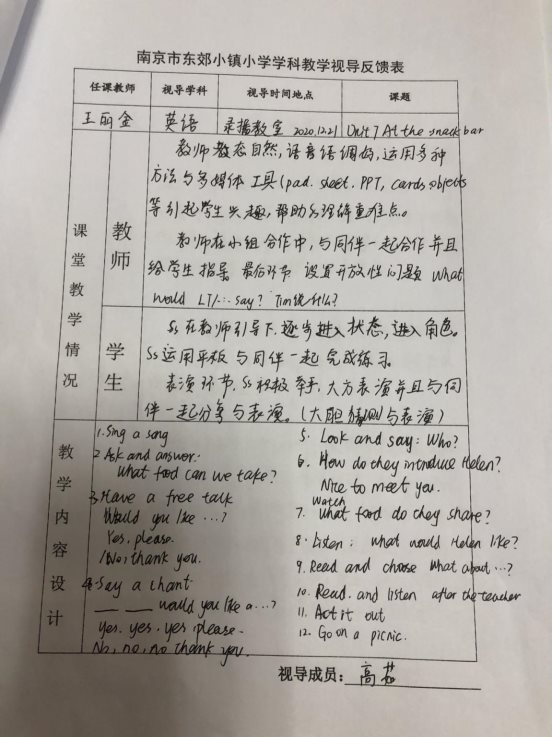 南京市东郊小镇小学学科教学视导反馈表
任课教师 视导学科 视导时间地点 课题
王丽金 英语 录播教室 2020.12.21 Unit 7 At the snack bar
课堂教学情况
教师
教师教态自然,语音语调好,运用多种
方法与多媒体工具(pad. sheet. PPT, cards objects
等引起学生兴趣,帮助Ss理解重难点。
教师在小组合作中,与同伴一起合作并且
给学生指导 最后环节 设置开放性问题 What
would LT/... say? Tim说什么?
学生
Ss 在教师引导下,逐步进入状态,进入角色。
Ss运用平板与同伴一起完成练习。
表演环节,Ss积极举手,大方表演并且与同
伴一起分享与表演。(大胆猜测与表演)
教学内容设计
1. Sing a song
2 Ask and answer:
What food can we take?
3. Have a free talk
Would you like ...?
Yes, please.
/No, thank you.
4. Say a chant
__ __ would you like a...?
Yes. yes. yes please.
No, no, no thank you.
5. Look and say: Who?
6. How do they introduce Helen?
Nice to meet you.
Watch
7. What food do they share?
8. Listen: what would Helen like?
9. Read and choose What about...?
10. Read. and listen after the teacher
11. Act it out
12. Go on a picnic.
视导成员:高茹